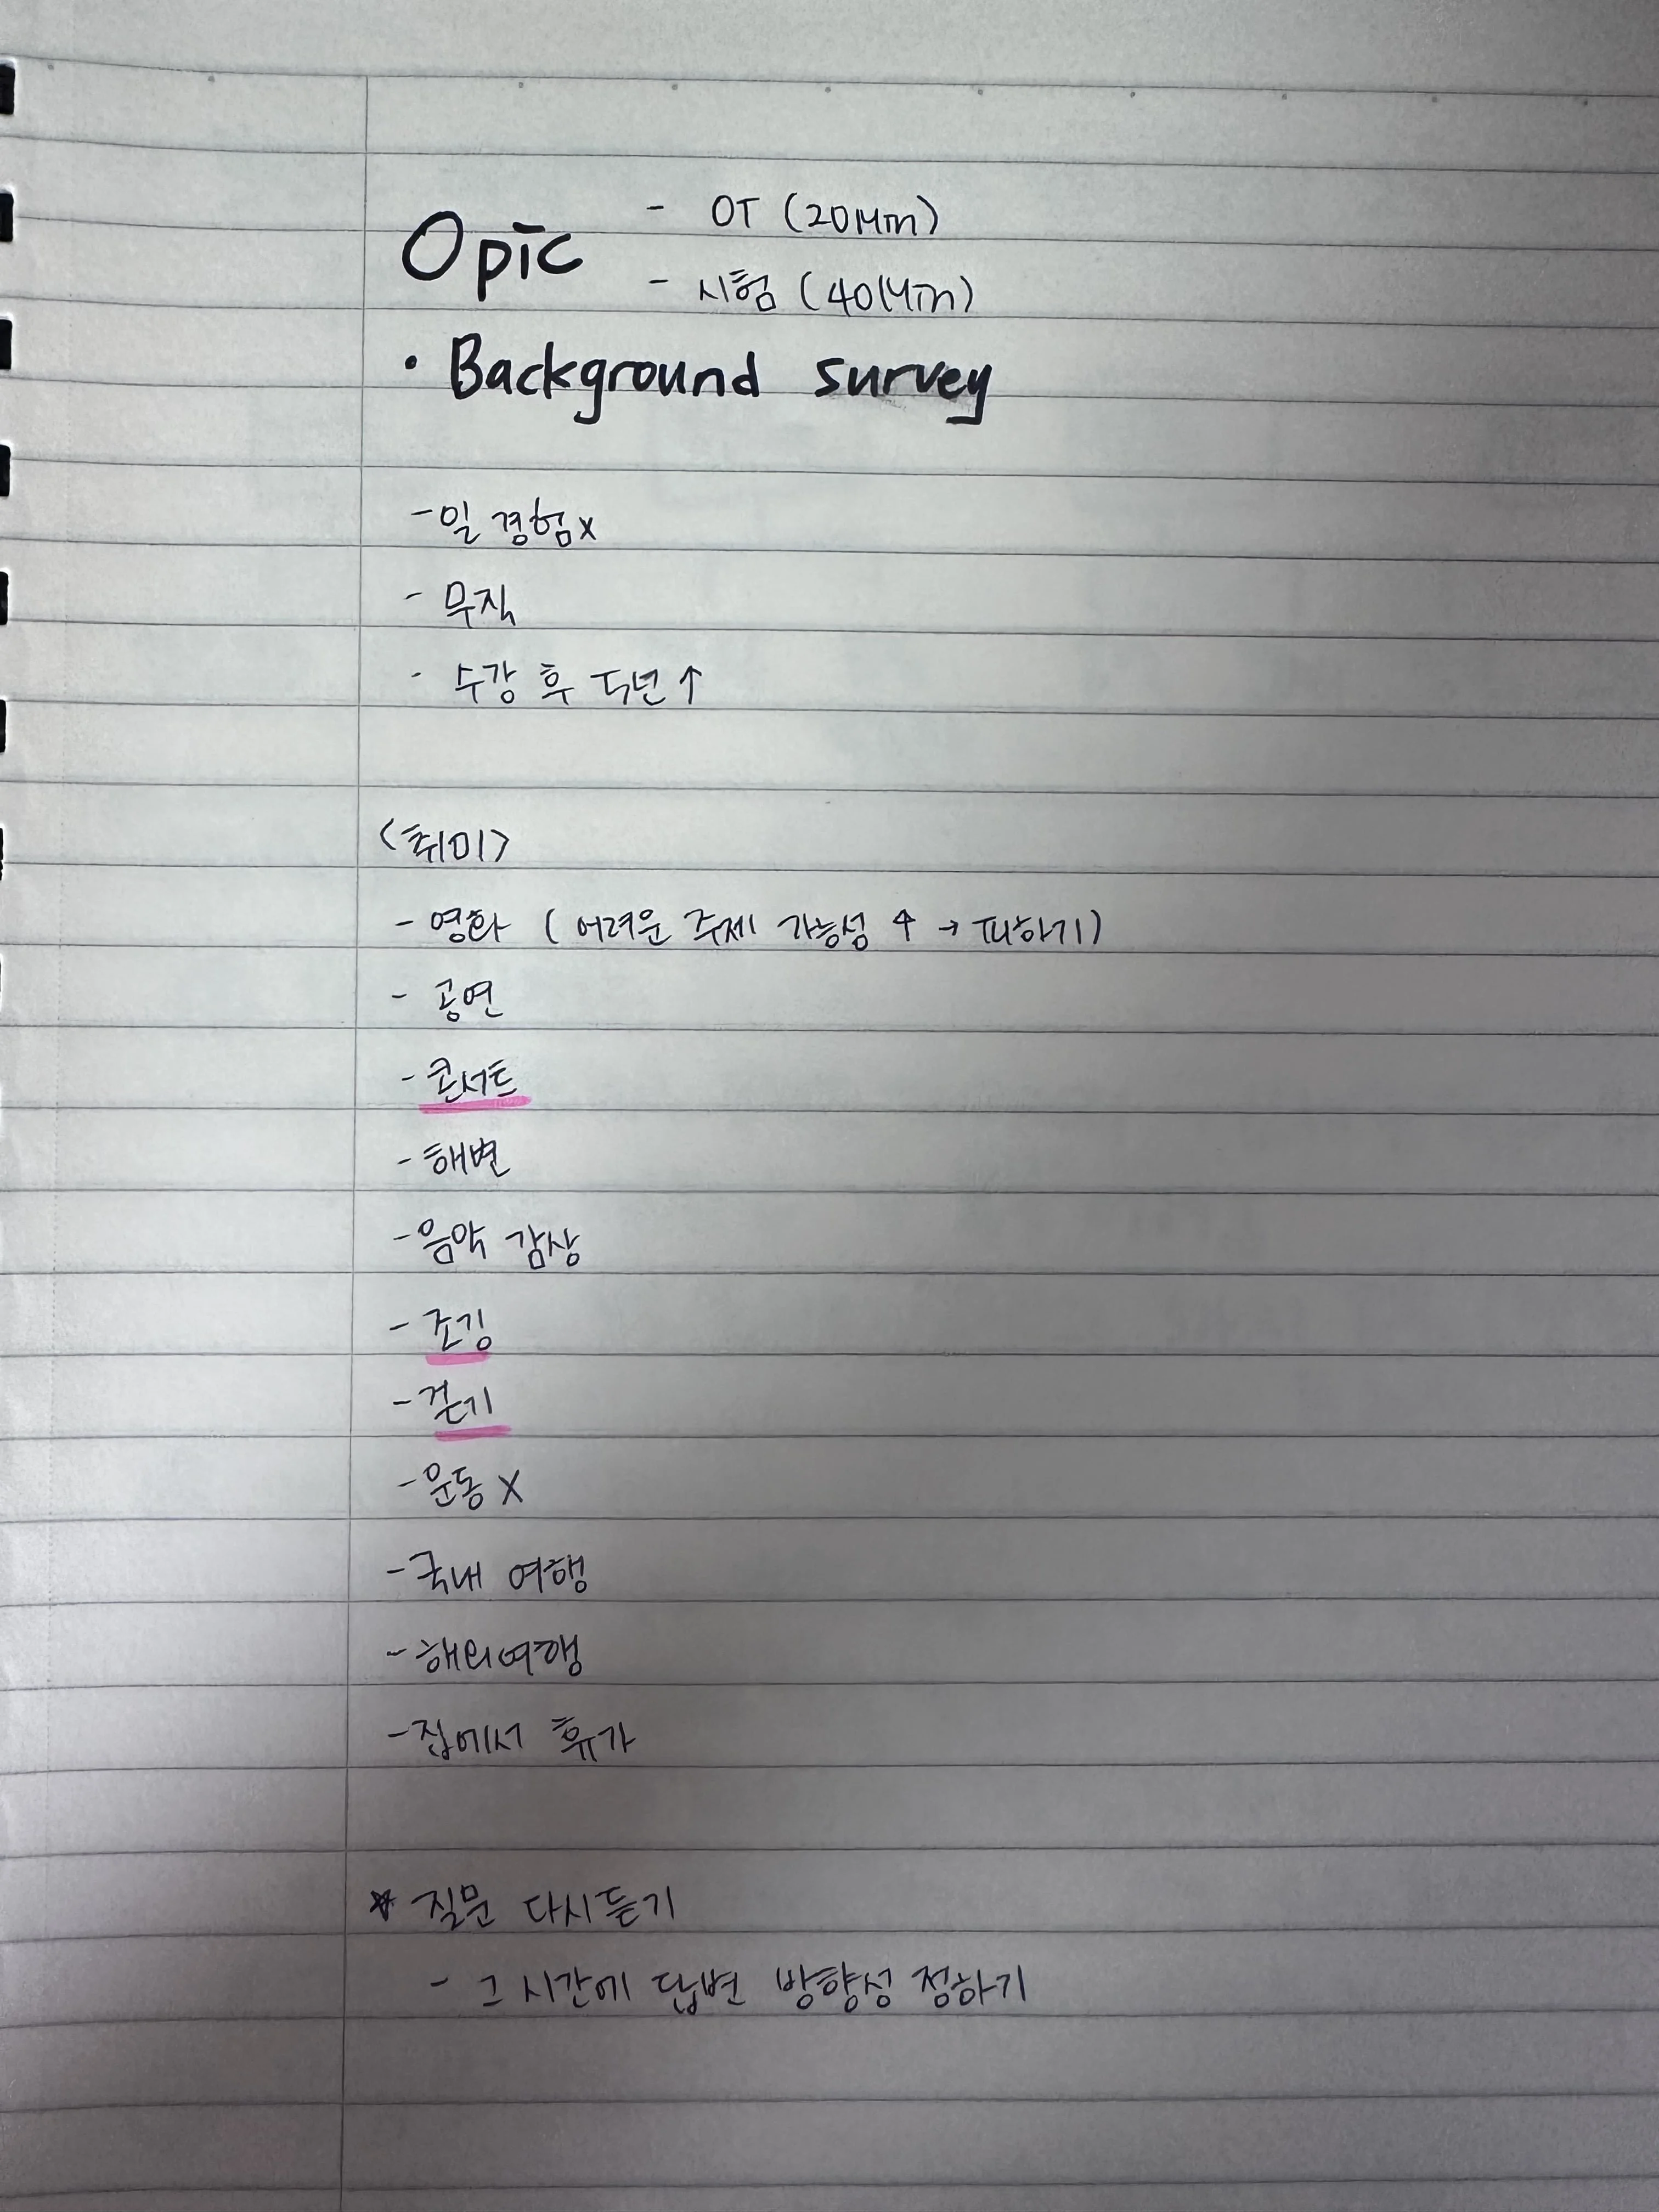 Opic - OT (20Min)
- 시험 (40Min)
• Background survey
- 일 경험x
- 무직
- 수강 후 5년 ↑
<취미>
- 영화 (어려운 주제 가능성 ↑ → 피하기)
- 공연
- 콘서트
- 해변
- 음악 감상
- 조깅
- 걷기
- 운동 X
- 국내 여행
- 해외여행
- 집에서 휴가
* 질문 다시듣기
- 그 시간에 답변 방향성 정하기